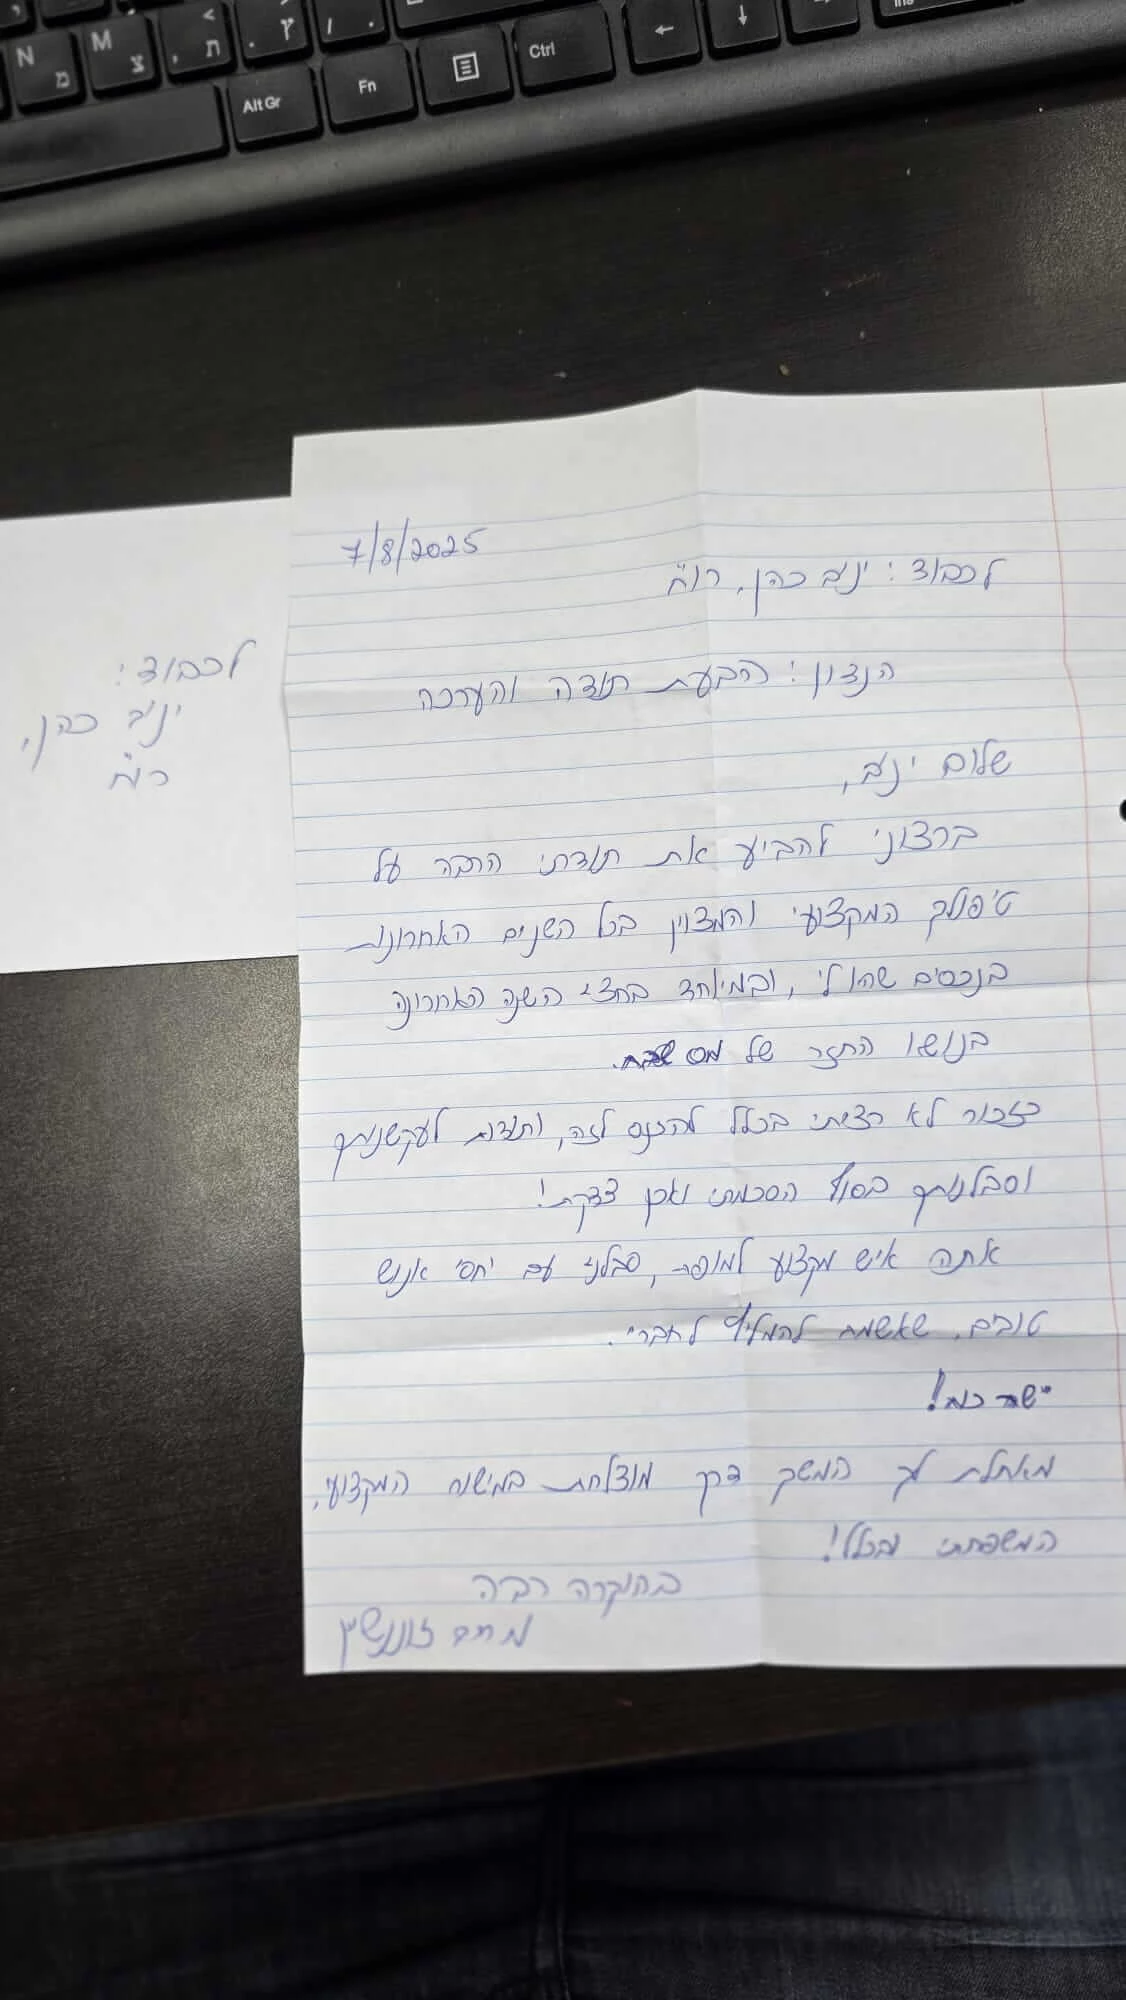 N מ
M צ
< , ת
> . ץ
/ .
Alt Gr
Fn
Ctrl
←
↓
Ins
7/8/2025
לכבוד: יניב כהן, רו"ח
הנדון: הבעת תודה והערכה
שלום יניב,
ברצוני להביע את תודתי הרבה על
טיפולך המקצועי והמצוין בכל השנים האחרונות
בנכסים שהיו לי, ובמיוחד בחצי השנה האחרונה
בנושא החזר של מס שבח.
כזכור לא רציתי בכלל להכנס לזה, ותודות לעקשנותך
וסבלנותך בסוף הסכמתי ואכן צדקת!
אתה איש מקצוע למופת, סבלני עם יחסי אנוש
טובים, שאשמח להמליץ לחבריי.
יישר כוח!
מאחלת לך המשך דרך מוצלחת במישור המקצועי,
המשפחתי ובכלל!
בהוקרה רבה
זוננשיין
לכבוד:
יניב כהן,
רו"ח